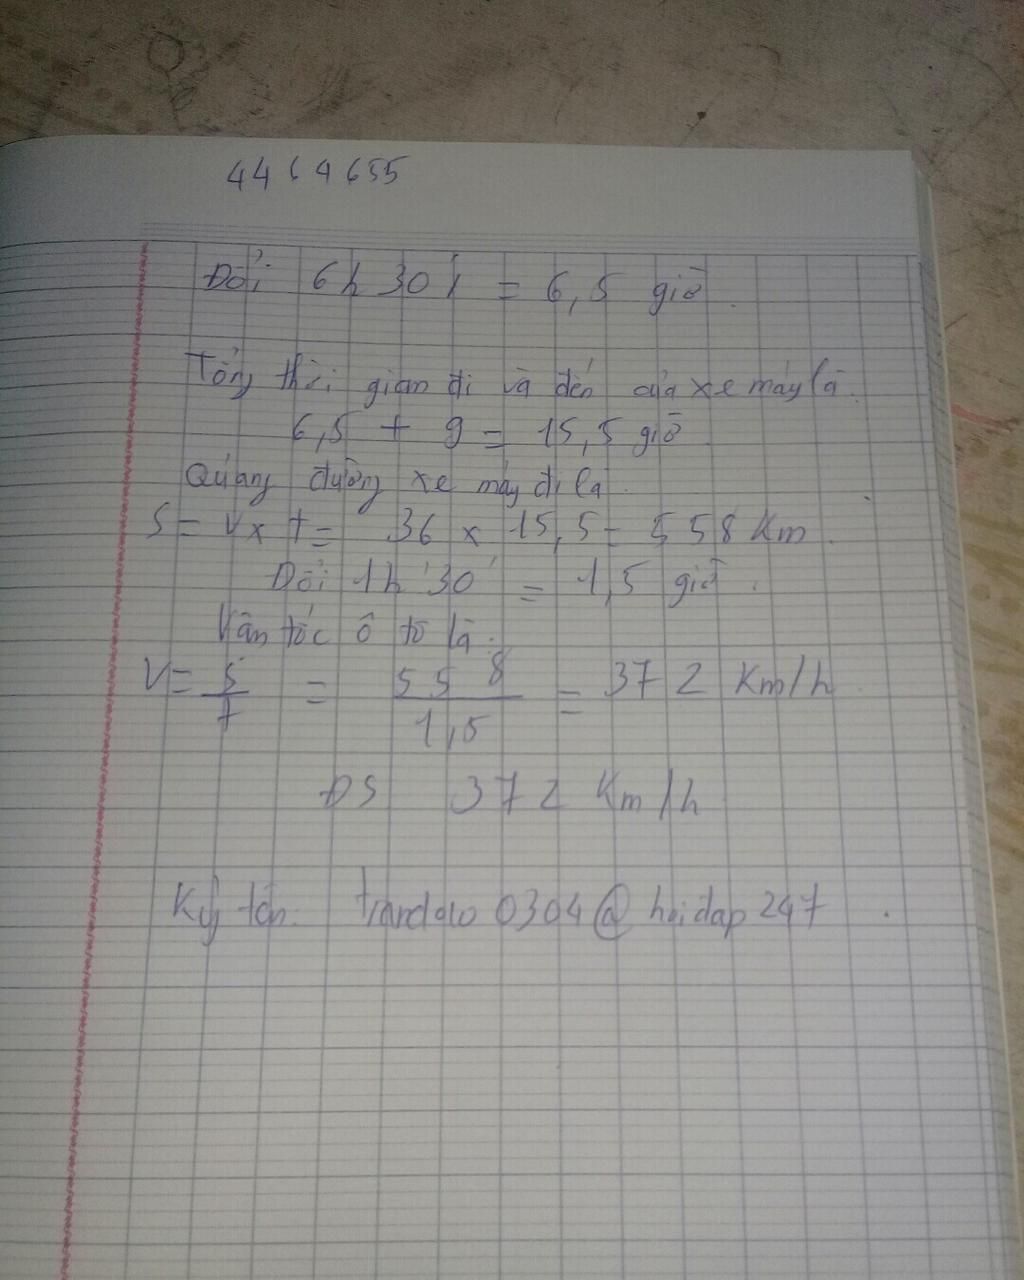 4464655
Đổi 6h 30' = 6,5 giờ.
Tổng thời gian đi và đến của xe máy là.
6,5 + 9 = 15,5 giờ
Quảng đường xe máy đi là.
S = V x t = 36 x 15,5 = 558 Km.
Đổi 1h 30' = 1,5 giờ.
Vân tốc ô tô là:
V = S/t = 558/1,5 = 372 Km/h
ĐS 372 Km/h
Ký tên. trandao0304@hoidap247.